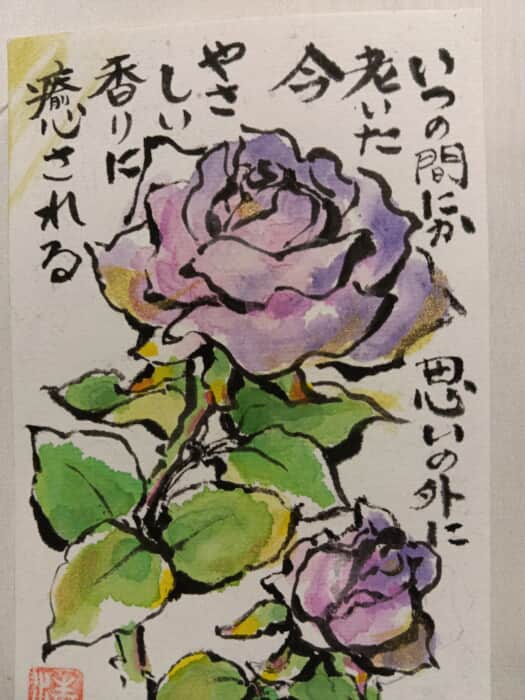 いつの間にか
思いの外に
老いた
今
やさ
しい
香りに
癒される